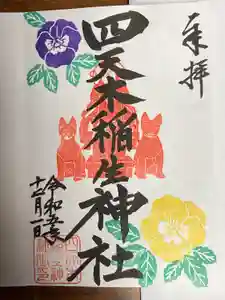 奉拝
四天木稲生神社
令和五年
十二月一日